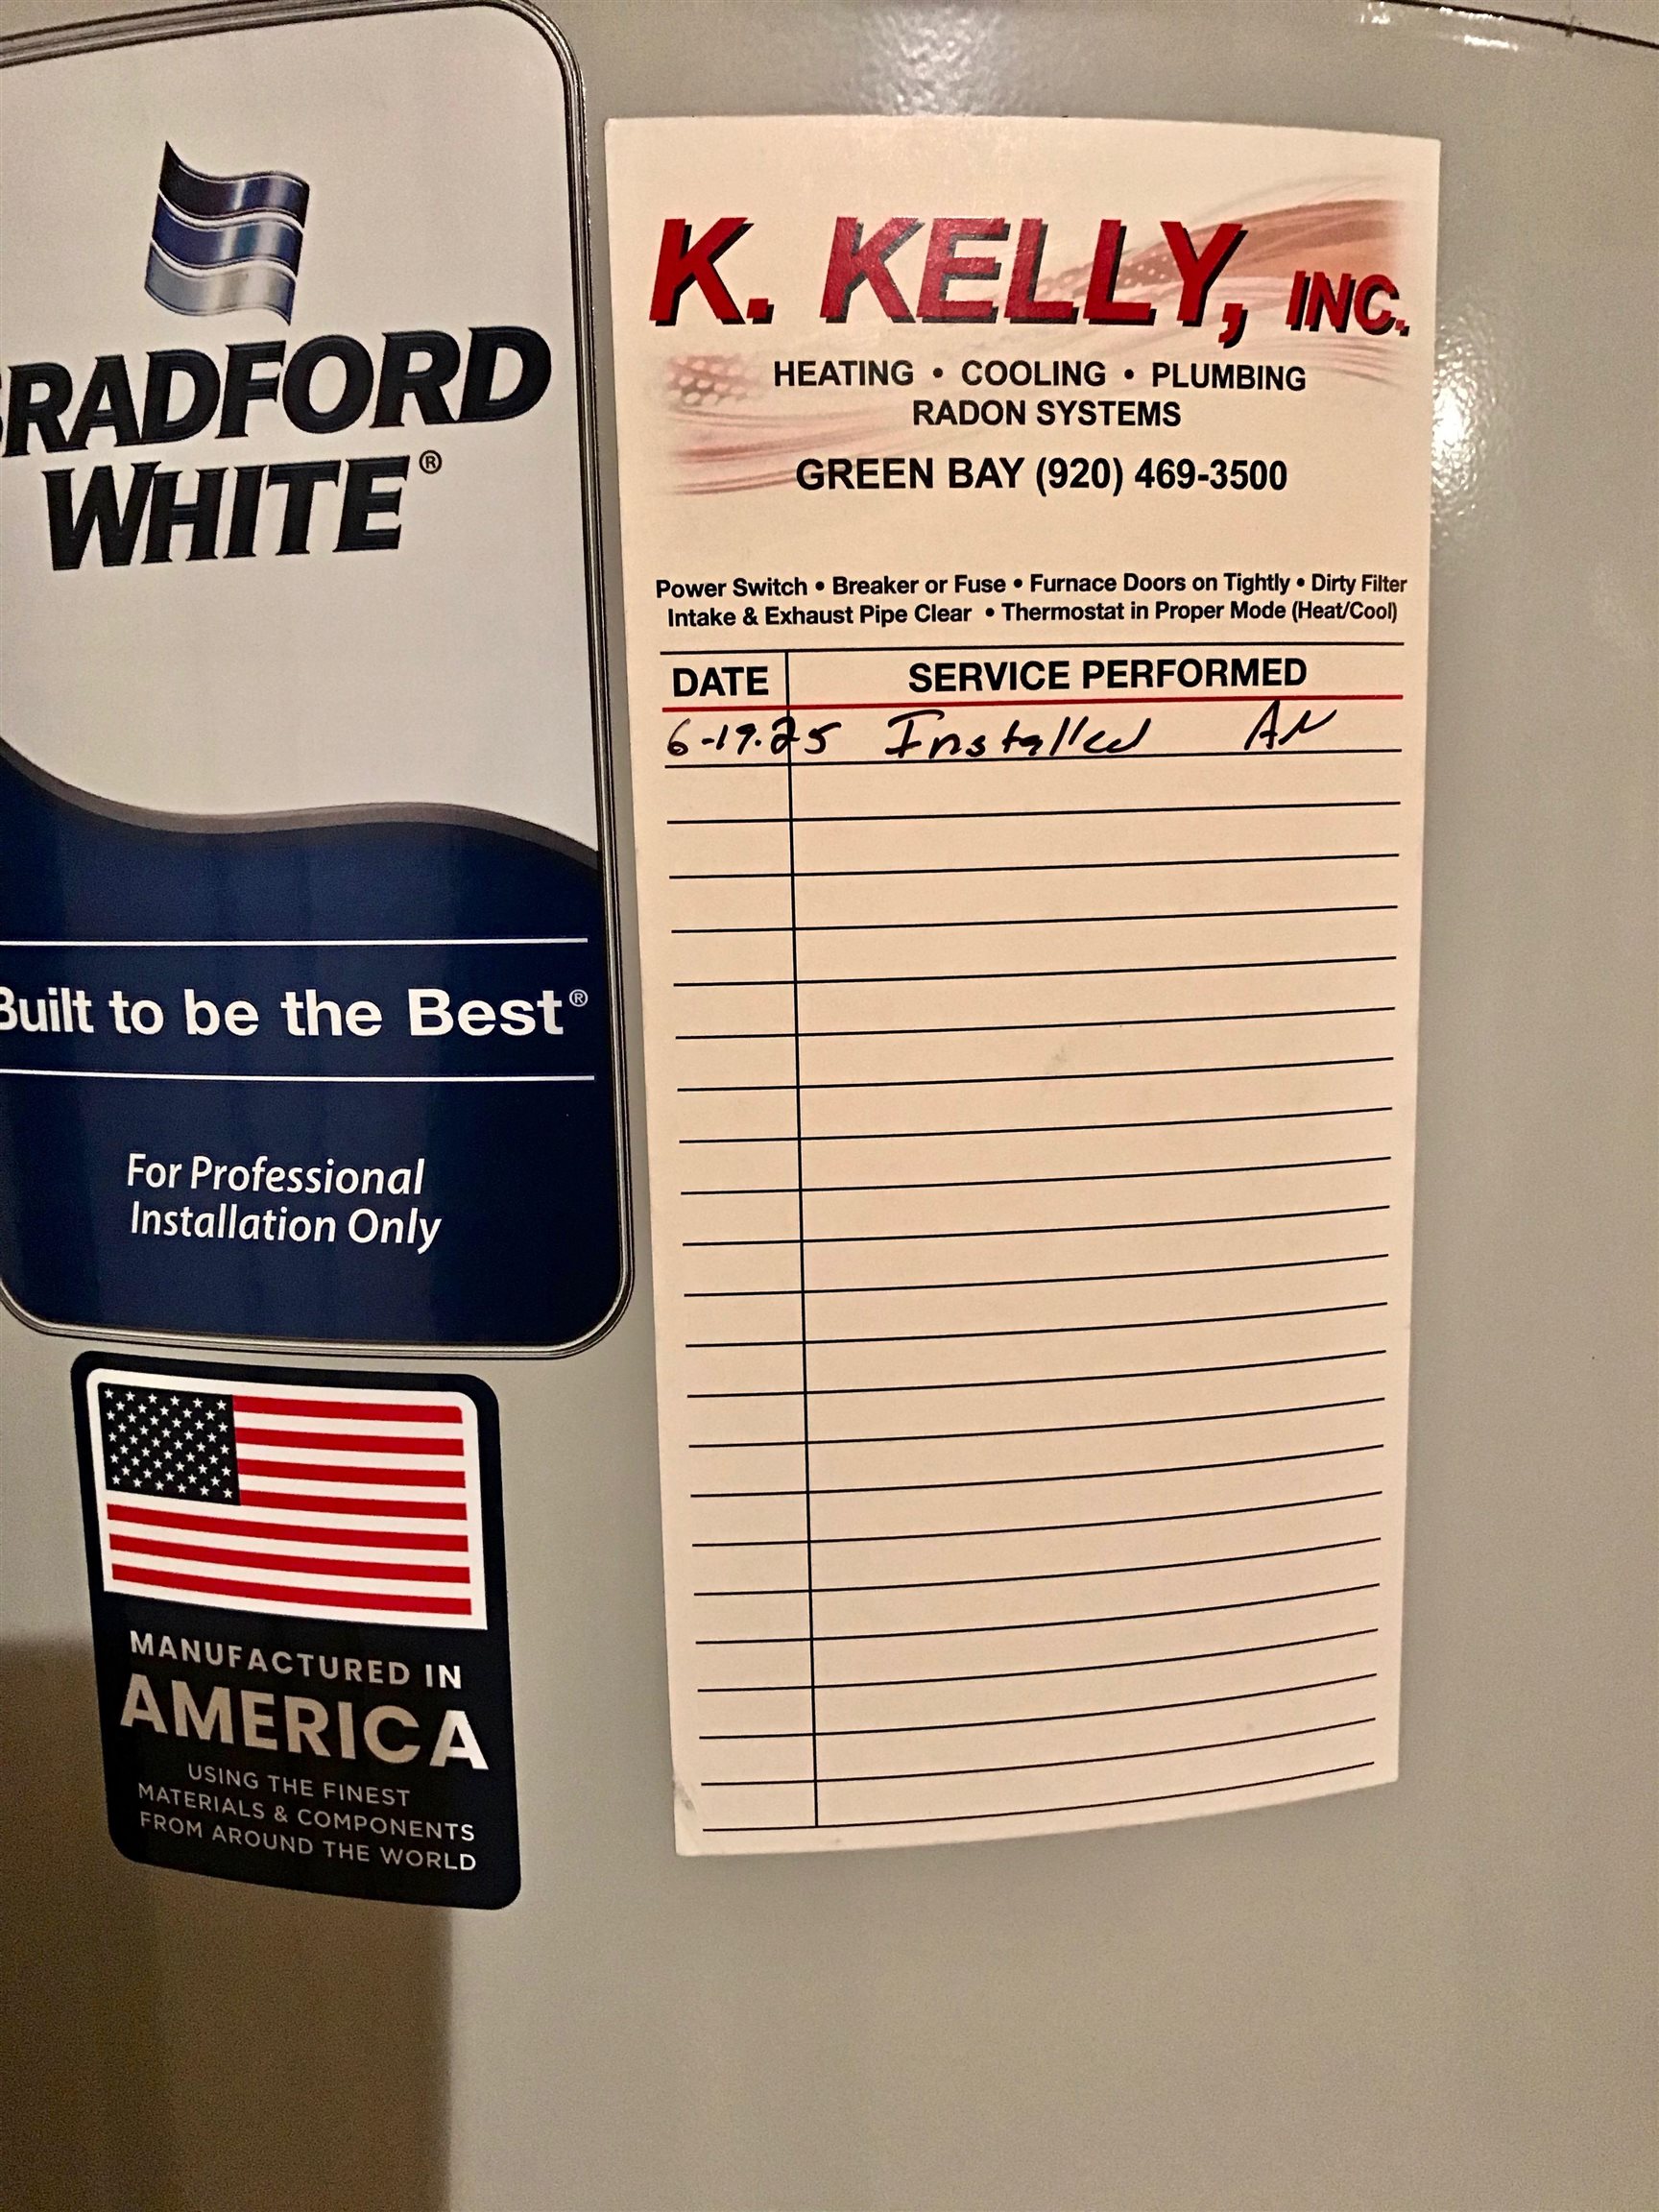 RADFORD
WHITE®
Built to be the Best®
For Professional
Installation Only
MANUFACTURED IN
AMERICA
USING THE FINEST
MATERIALS & COMPONENTS
FROM AROUND THE WORLD
K. KELLY, INC.
HEATING • COOLING • PLUMBING
RADON SYSTEMS
GREEN BAY (920) 469-3500
Power Switch • Breaker or Fuse • Furnace Doors on Tightly • Dirty Filter
Intake & Exhaust Pipe Clear • Thermostat in Proper Mode (Heat/Cool)
DATE SERVICE PERFORMED
6-19.25 Installed AN